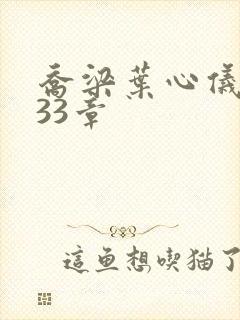 喬梁葉心儀
33章
這魚想喫猫了